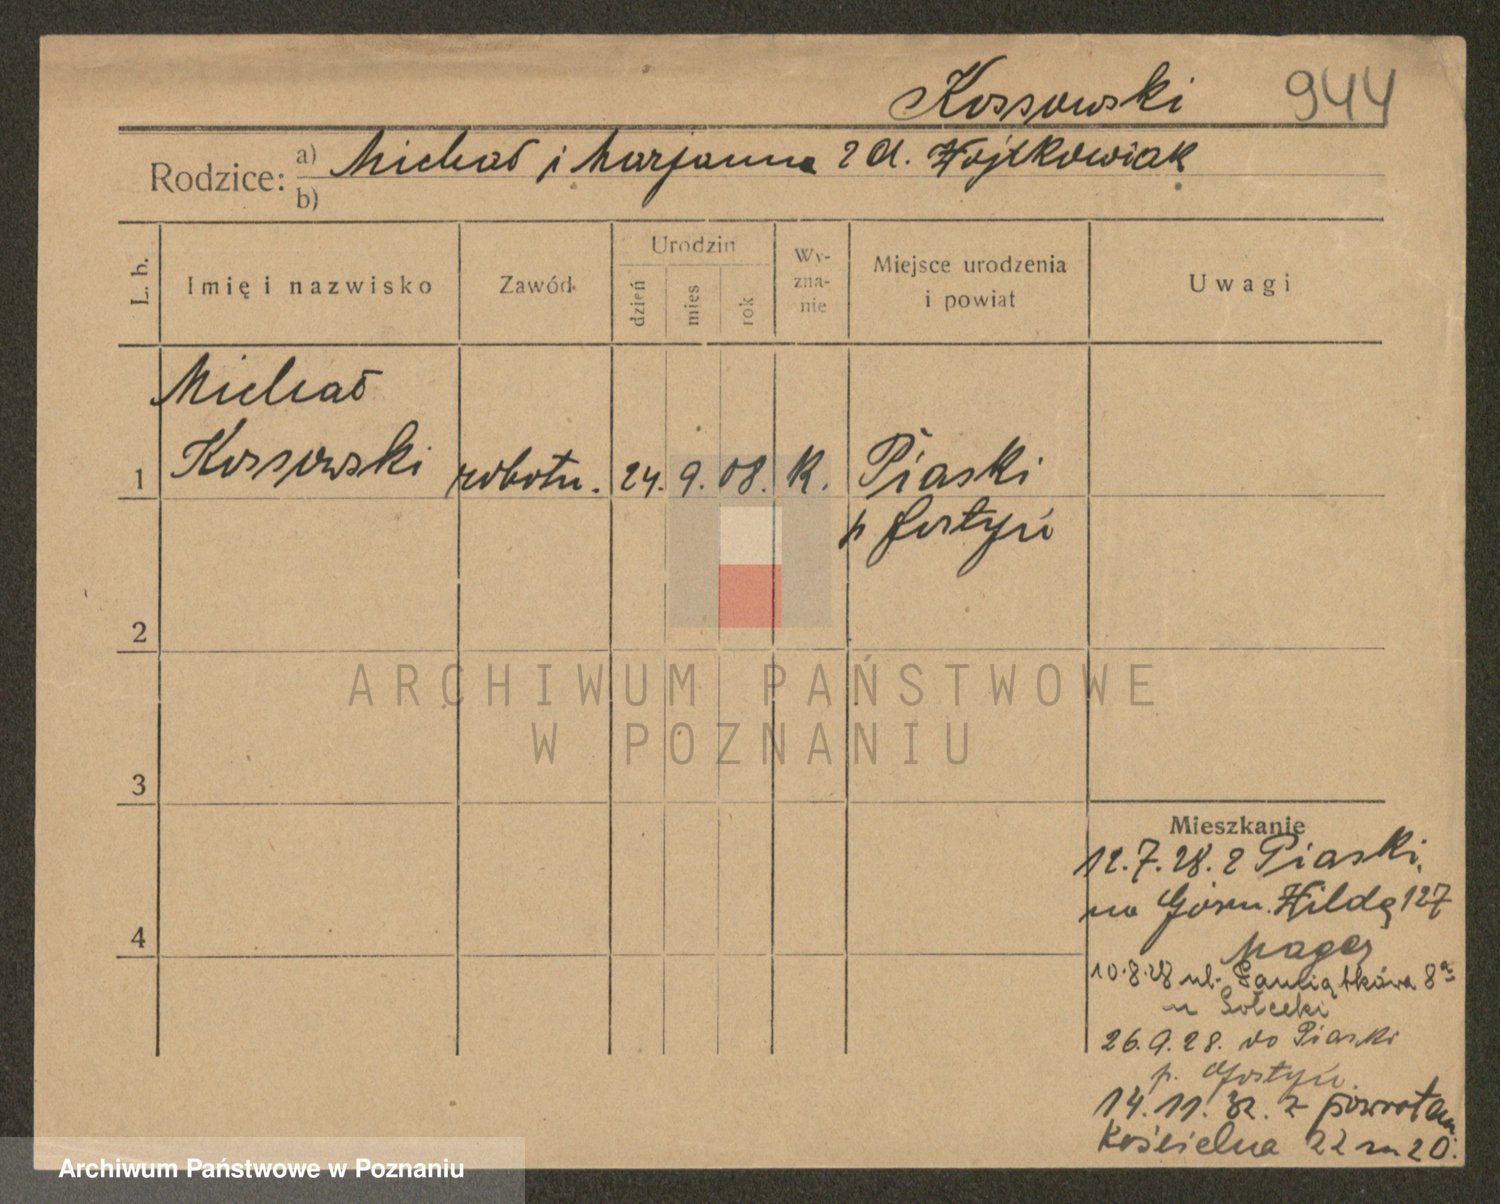 Kossowski 944
Rodzice: a) Michał i Marjanna z d. Wojtkowiak
b)
L. b. Imię i nazwisko Zawód Urodzin dzień mies rok Wyznanie Miejsce urodzenia i powiat Uwagi
Michał
1 Kossowski robotn. 24. 9. 08. K. Piaski
p Gostyń
2
ARCHIWUM PAŃSTWOWE
W POZNANIU
3
Mieszkanie
12.7.28. z Piaski,
na Górn. Wildę 127
4
10.8.28 ul. Pamiątkowa 8a
u
26.9.28. do Piaski
p. Gostyń.
14.11.32. z powrotem
Kościelna 22 m 20.
Archiwum Państwowe w Poznaniu